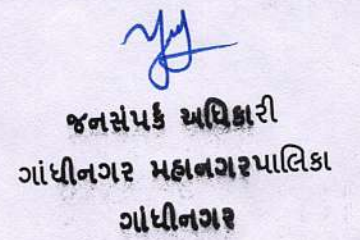 જનસંપર્ક અધિકારી
ગાંધીનગર મહાનગરપાલિકા
ગાંધીનગર